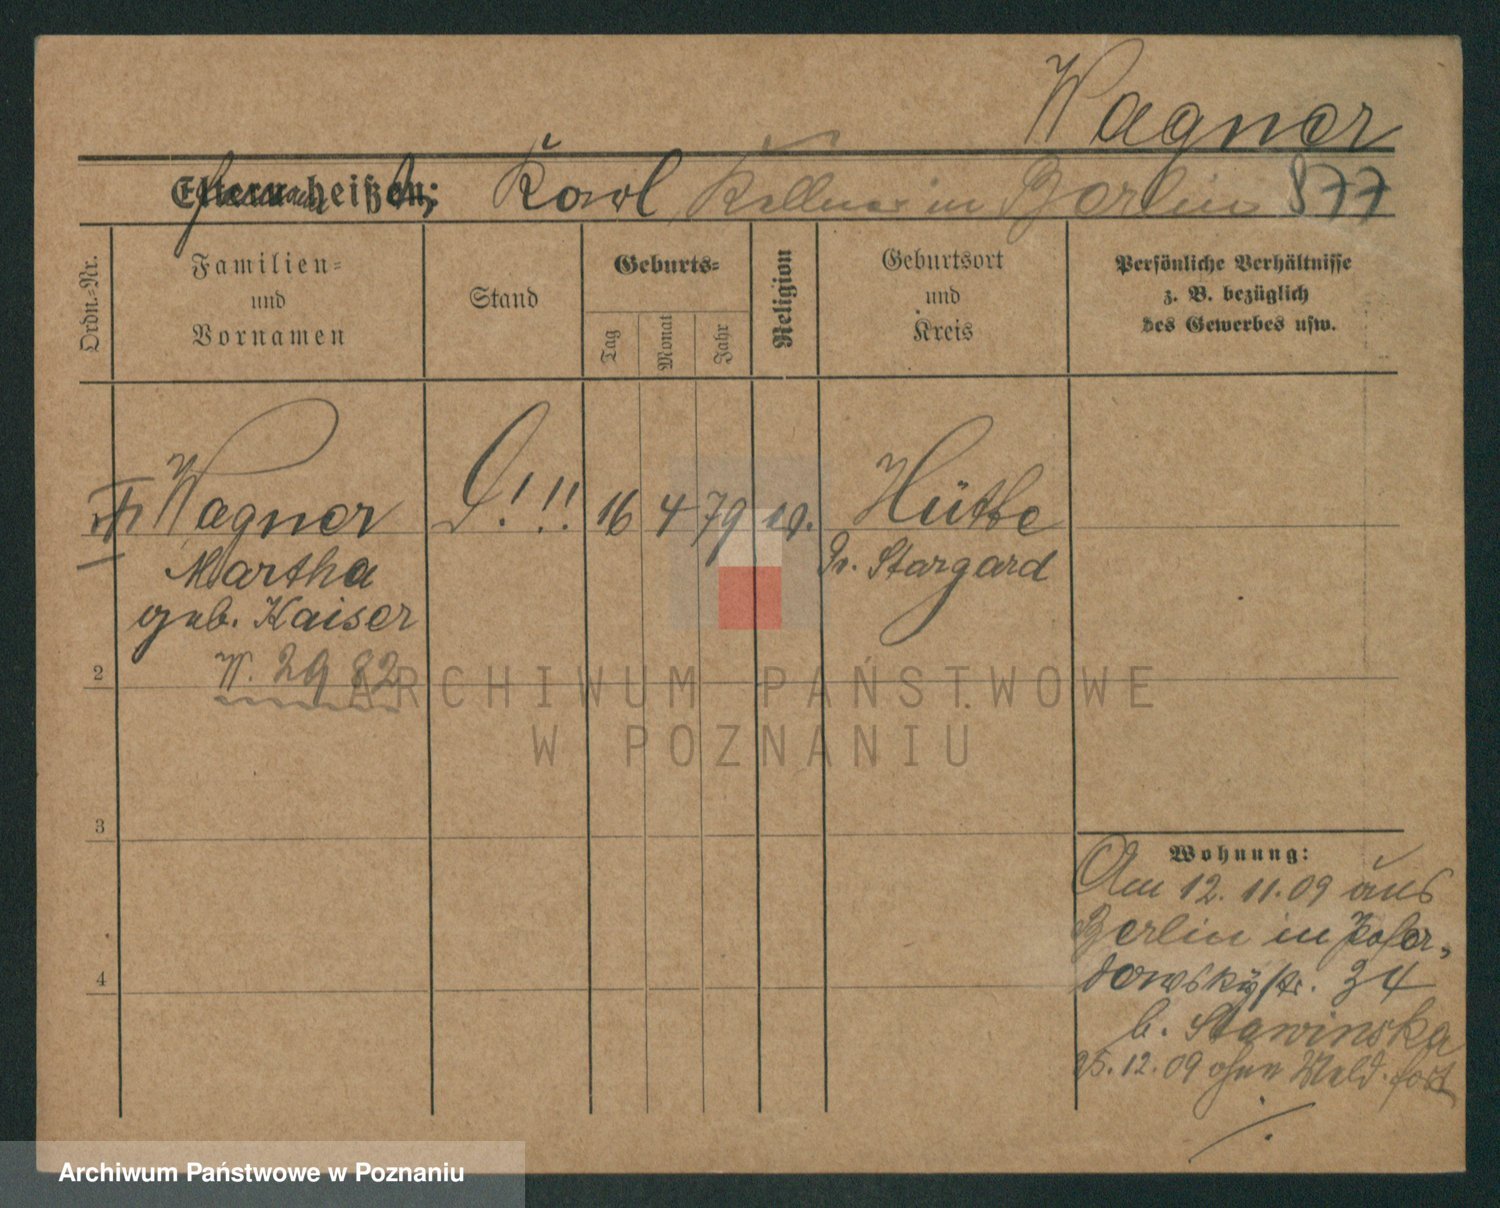 Wagner
Eltern heißen: Karl Kellner in Berlin 877
Ordn.-Nr.
Familien- und Vornamen
Stand
Geburts-
Tag
Monat
Jahr
Religion
Geburtsort und Kreis
Persönliche Verhältnisse
z. B. bezüglich
des Gewerbes usw.
Wagner
16 4 79
Martha
Pr. Stargard
geb. Kaiser
W. 2982
2
3
4
Wohnung:
Am 12.11.09 aus
Berlin in
34
b. Stawinska
25.12.09 ohne Meld. fort
ARCHIWUM PAŃSTWOWE
W POZNANIU
Archiwum Państwowe w Poznaniu